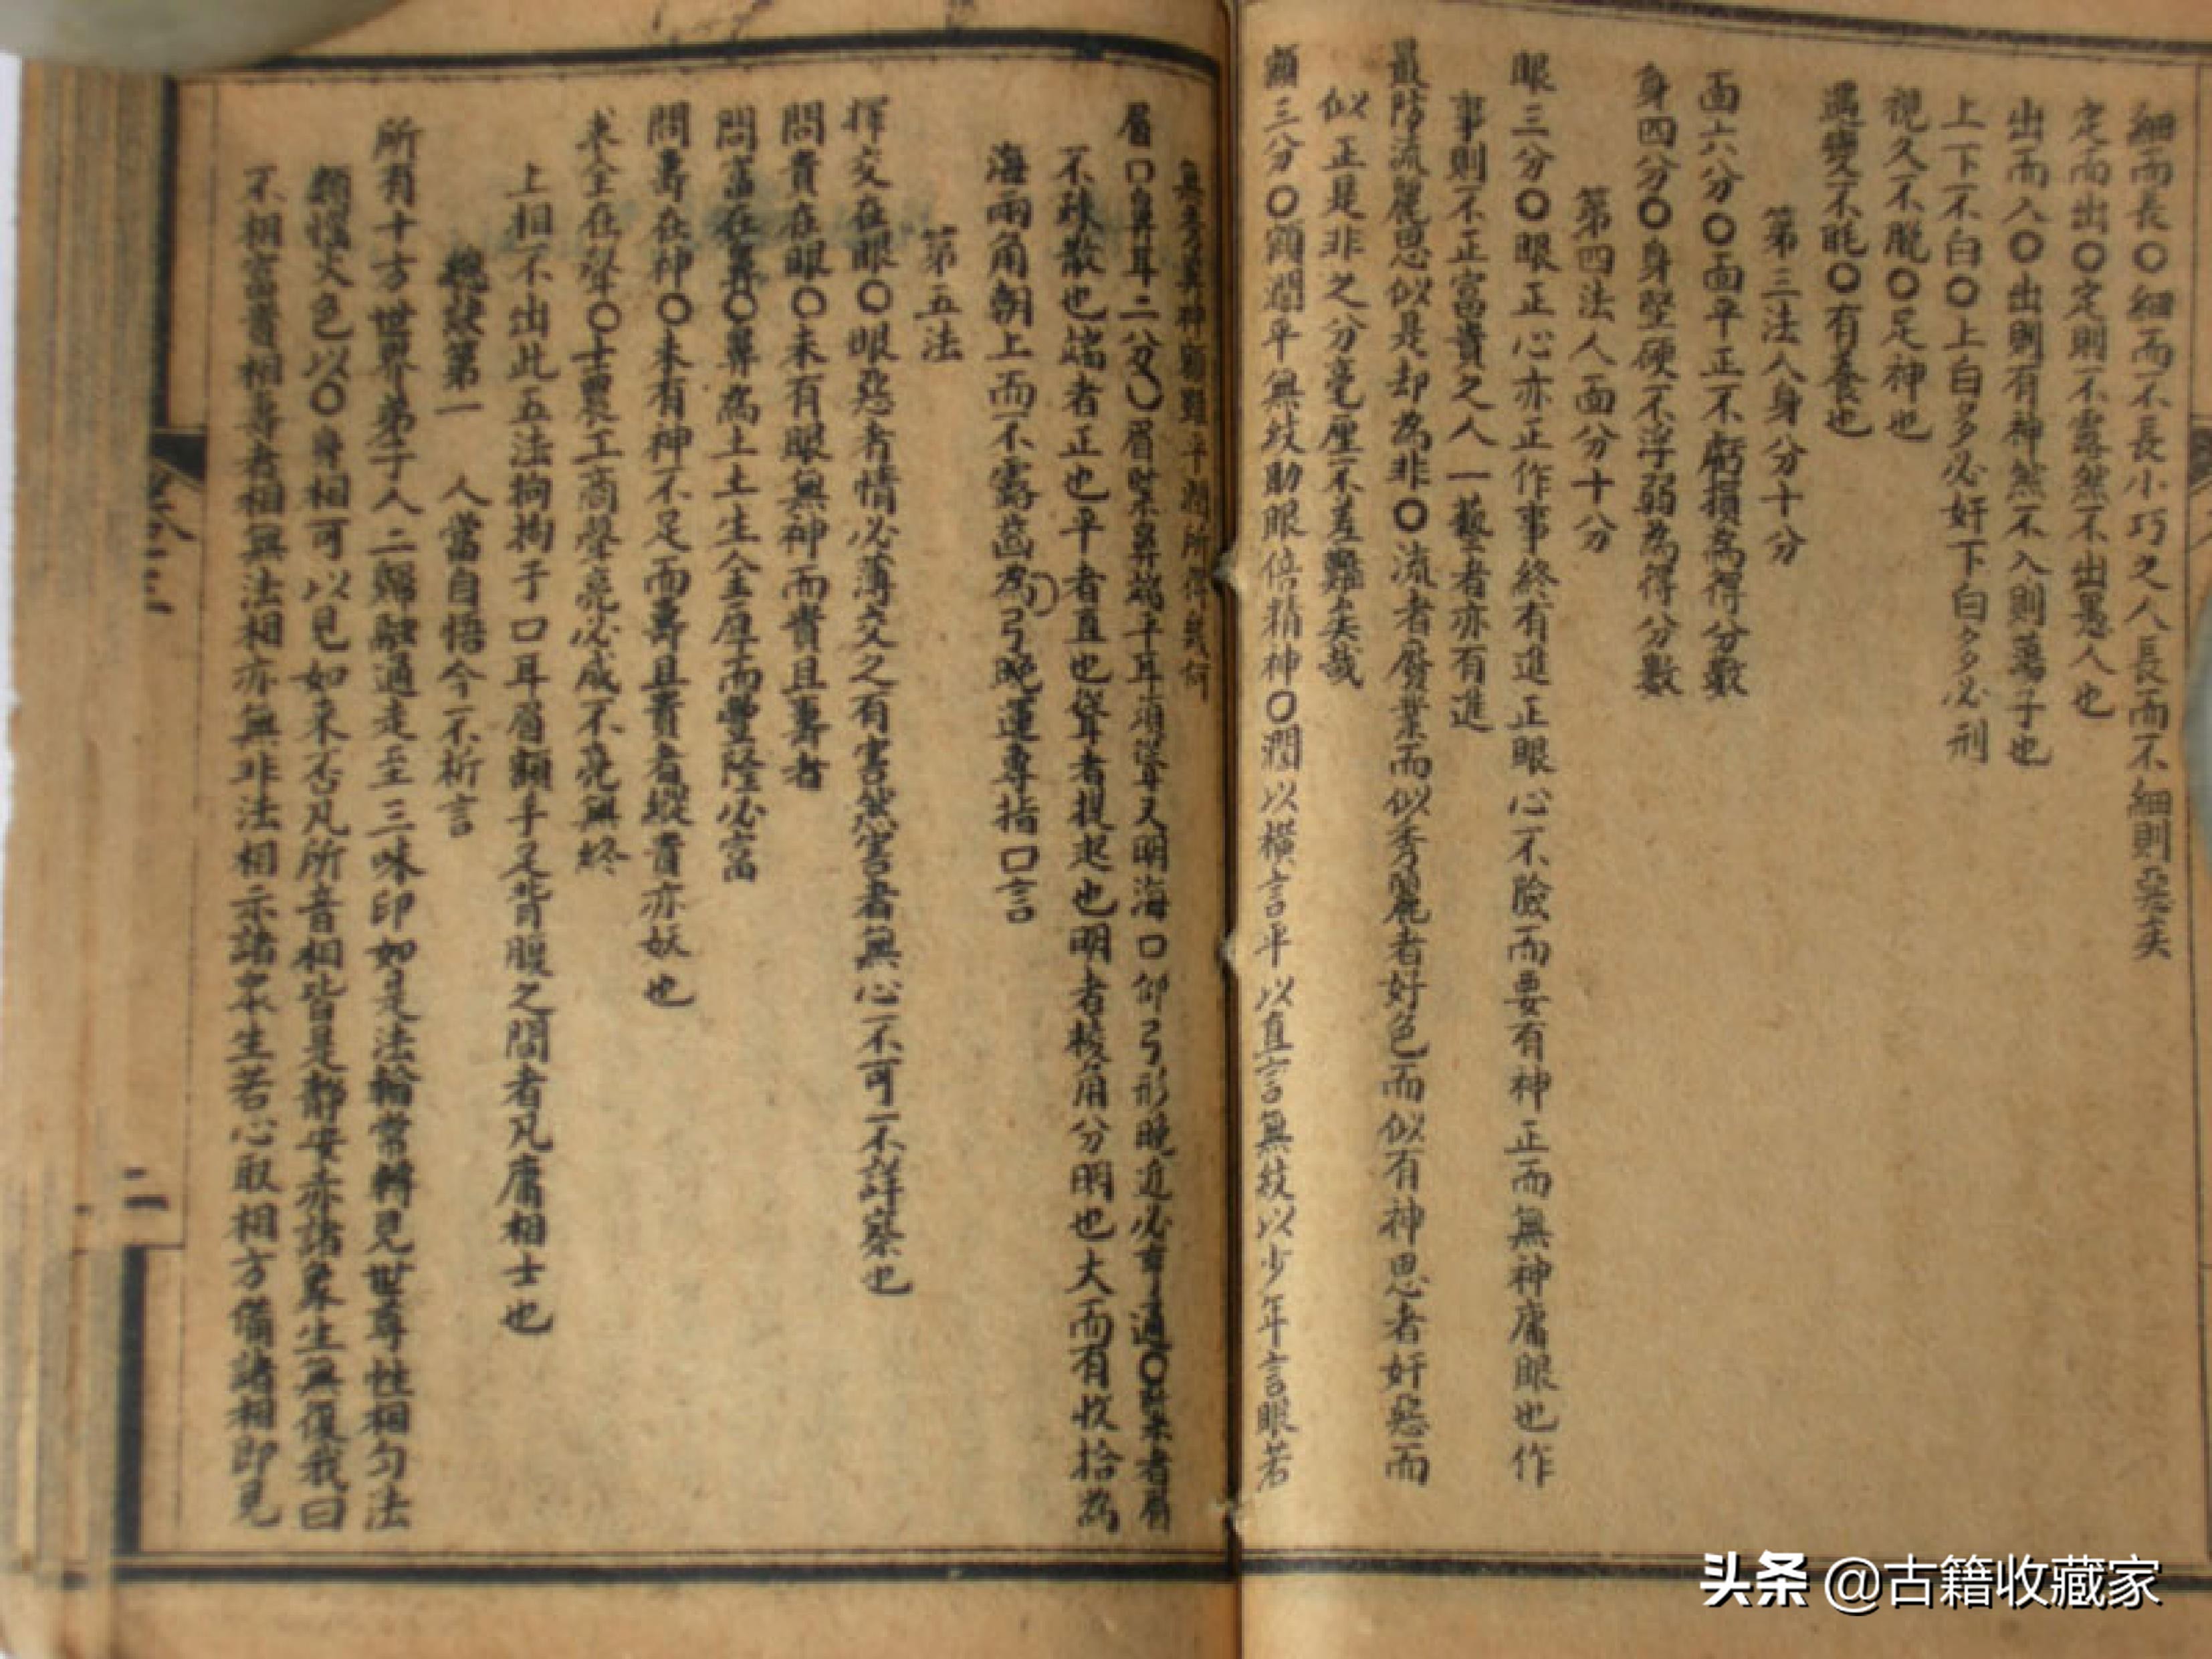 細而長〇細而不長小巧之人長而不細則惡矣
定而出〇定則不露然不出愚人也
出而入〇出則有神然不入則蕩子也
上下不白〇上白多必奸下白多必刑
視久不脫〇足神也
遇變不眊〇有養也
第三法人身分十分
面六分〇面平正不虧損為得分數
身四分〇身堅硬不浮弱為得分數
第四法人面分十分
眼三分〇眼正心亦正作事終有進正眼心不險而要有神正而無神庸眼也作
事則不正富貴之人一藝者亦有進
最防流麗思似是却為非〇流者歷業而似秀麗者好色而似有神思者奸惡而
似正是非之分毫厘不差難矣哉
額三分〇額濶平無紋助眼倍精神〇濶以橫言平以直言無紋以少年言眼若
無秀異神額雖平濶所得幾何
眉口鼻耳二分〇眉緊鼻端平耳聳又明海口仰弓形晚近必亨通〇緊者眉
不疎散也端者正也平者直也聳者提起也明者棱角分明也大而有收拾為
海兩角朝上而不露齒為弓晚運專指口言
第五法
擇交在眼〇眼惡者情必薄交之有害然害者無心不可不詳察也
問貴在眼〇未有眼無神而貴且壽者
問富在鼻〇鼻為土土生金厚而豐隆必富
問壽在神〇未有神不足而壽且貴者縱貴亦妖也
求全在聲〇士農工商聲亮必成不亮無終
上相不出此五法拘拘于口耳眉額手足背腹之間者凡庸相士也
總訣第一 人當自悟今不析言
所有十方世界弟子人二歸融通走至三昧印如是法輪常轉見世尊性相勻法
類慍火色以〇身相可以見如來否凡所音相皆是靜安亦諸眾生無復我曰
不相富貴相壽者相無法相亦無非法相示諸眾生若心取相方備諸相即見
卷三
二
头条 @古籍收藏家